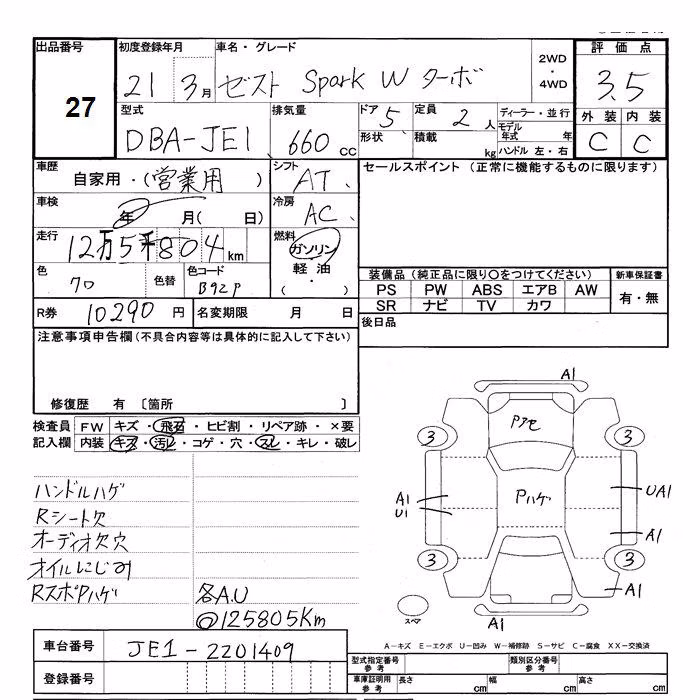 出品番号 初度登録年月 車名・グレード 2WD・4WD 評価点
27 21 3月 ゼスト Spark W ターボ 3.5
型式 排気量 ドア 5 定員 2人 ディーラー・並行 外装 内装
DBA-JE1 660cc 形状 積載 kg モデル年式 年 C C
ハンドル 左・右
車歴 シフト セールスポイント (正常に機能するものに限ります)
自家用・(営業用) AT
車検 年 月( 日) 冷房 AC
走行 12万5千804km 燃料 ガソリン
軽油
・
( )
色 クロ 色替 色コード B92P
装備品 (純正品に限り○をつけてください) 新車保証書
PS PW ABS エアB AW 有・無
SR ナビ TV カワ
R券 10290円 名変期限 月 日 後日品
注意事項申告欄 (不具合内容等は具体的に記入して下さい)
修復歴 有 〔箇所 〕
検査員 FW キズ・飛石・ヒビ割・リペア跡・×要
記入欄 内装 キズ・汚レ・コゲ・穴・スレ・キレ・破レ
ハンドルハゲ
Rシート欠
オーディオ欠穴
オイルにじみ
RスポPハゲ 各A.U
◎125805Km
A1
3 3
Pハゲ
A1 U1 UA1
A1
3 3
A1
スペア A1
A−キズ E−エクボ U−凹み W−補修跡 S−サビ C−腐食 XX−交換済
車台番号 JE1-2201409
登録番号
型式指定番号 参考 類別区分番号 参考
車庫証明用 参考 長さ cm 幅 cm 高さ cm